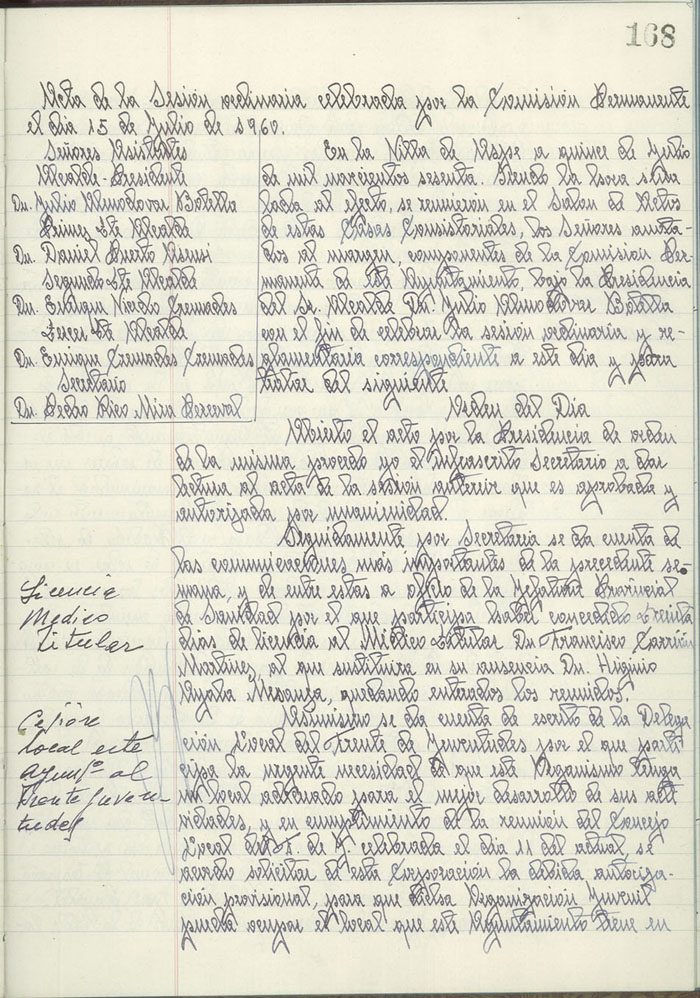 168
Acta de la Sesión ordinaria celebrada por la Comisión Permanente
el dia 15 de Julio de 1960.
Señores Asistentes
Alcalde-Presidente
Dn. Julio Almodovar Botella
Primer Tte Alcalde
Dn. Daniel Puerto Asensi
Segundo Tte Alcalde
Dn. Enrique Cremades
Tercer Tte Alcalde
Dn. Enrique Cremades Cremades
Secretario
Dn. Pedro Rico Mira Perceval
En la Villa de Aspe a quince de Julio
de mil novecientos sesenta. Siendo la hora seña
lada al efecto, se reunieron en el Salon de Actos
de estas Casas Consistoriales, los Señores anota-
dos al margen, componentes de la Comision Per-
manente de este Ayuntamiento, bajo la Presidencia
del Sr. Alcalde Dn. Julio Almodovar Botella
con el fin de celebrar la sesión ordinaria y re-
glamentaria correspondiente a este dia y para
tratar del siguiente
Orden del Dia
Abierto el acto por la Presidencia de orden
de la misma procedo yo el infrascrito Secretario a dar
lectura al acta de la sesión anterior que es aprobada y
autorizada por unanimidad.
Seguidamente por Secretaria se da cuenta de
las comunicaciones más importantes de la precedente se-
mana, y de entre estas a oficio de la Jefatura Provincial
de Sanidad por el que participa haber concedido treinta
dias de licencia al Médico titular Dn. Francisco Carrión
Martinez, al que sustituira en su ausencia Dn. Higinio
Ayala, quedando enterados los reunidos.
Licencia
Medico
titular
Asimismo se da cuenta de escrito de la Delega
ción Local del Frente de Juventudes por el que parti
cipa la urgente necesidad de que este Organismo tenga
un local adecuado para el mejor desarrollo de sus acti
vidades, y en cumplimiento de la reunión del Concejo
Local del F. de J. celebrada el dia 11 del actual, se
acordo solicitar de esta Corporación la debida autoriza-
ción provisional, para que dicha Organización Juvenil
pueda ocupar el local que este Ayuntamiento tiene en
local este
Ayunto al
Frente Juven-
tudes